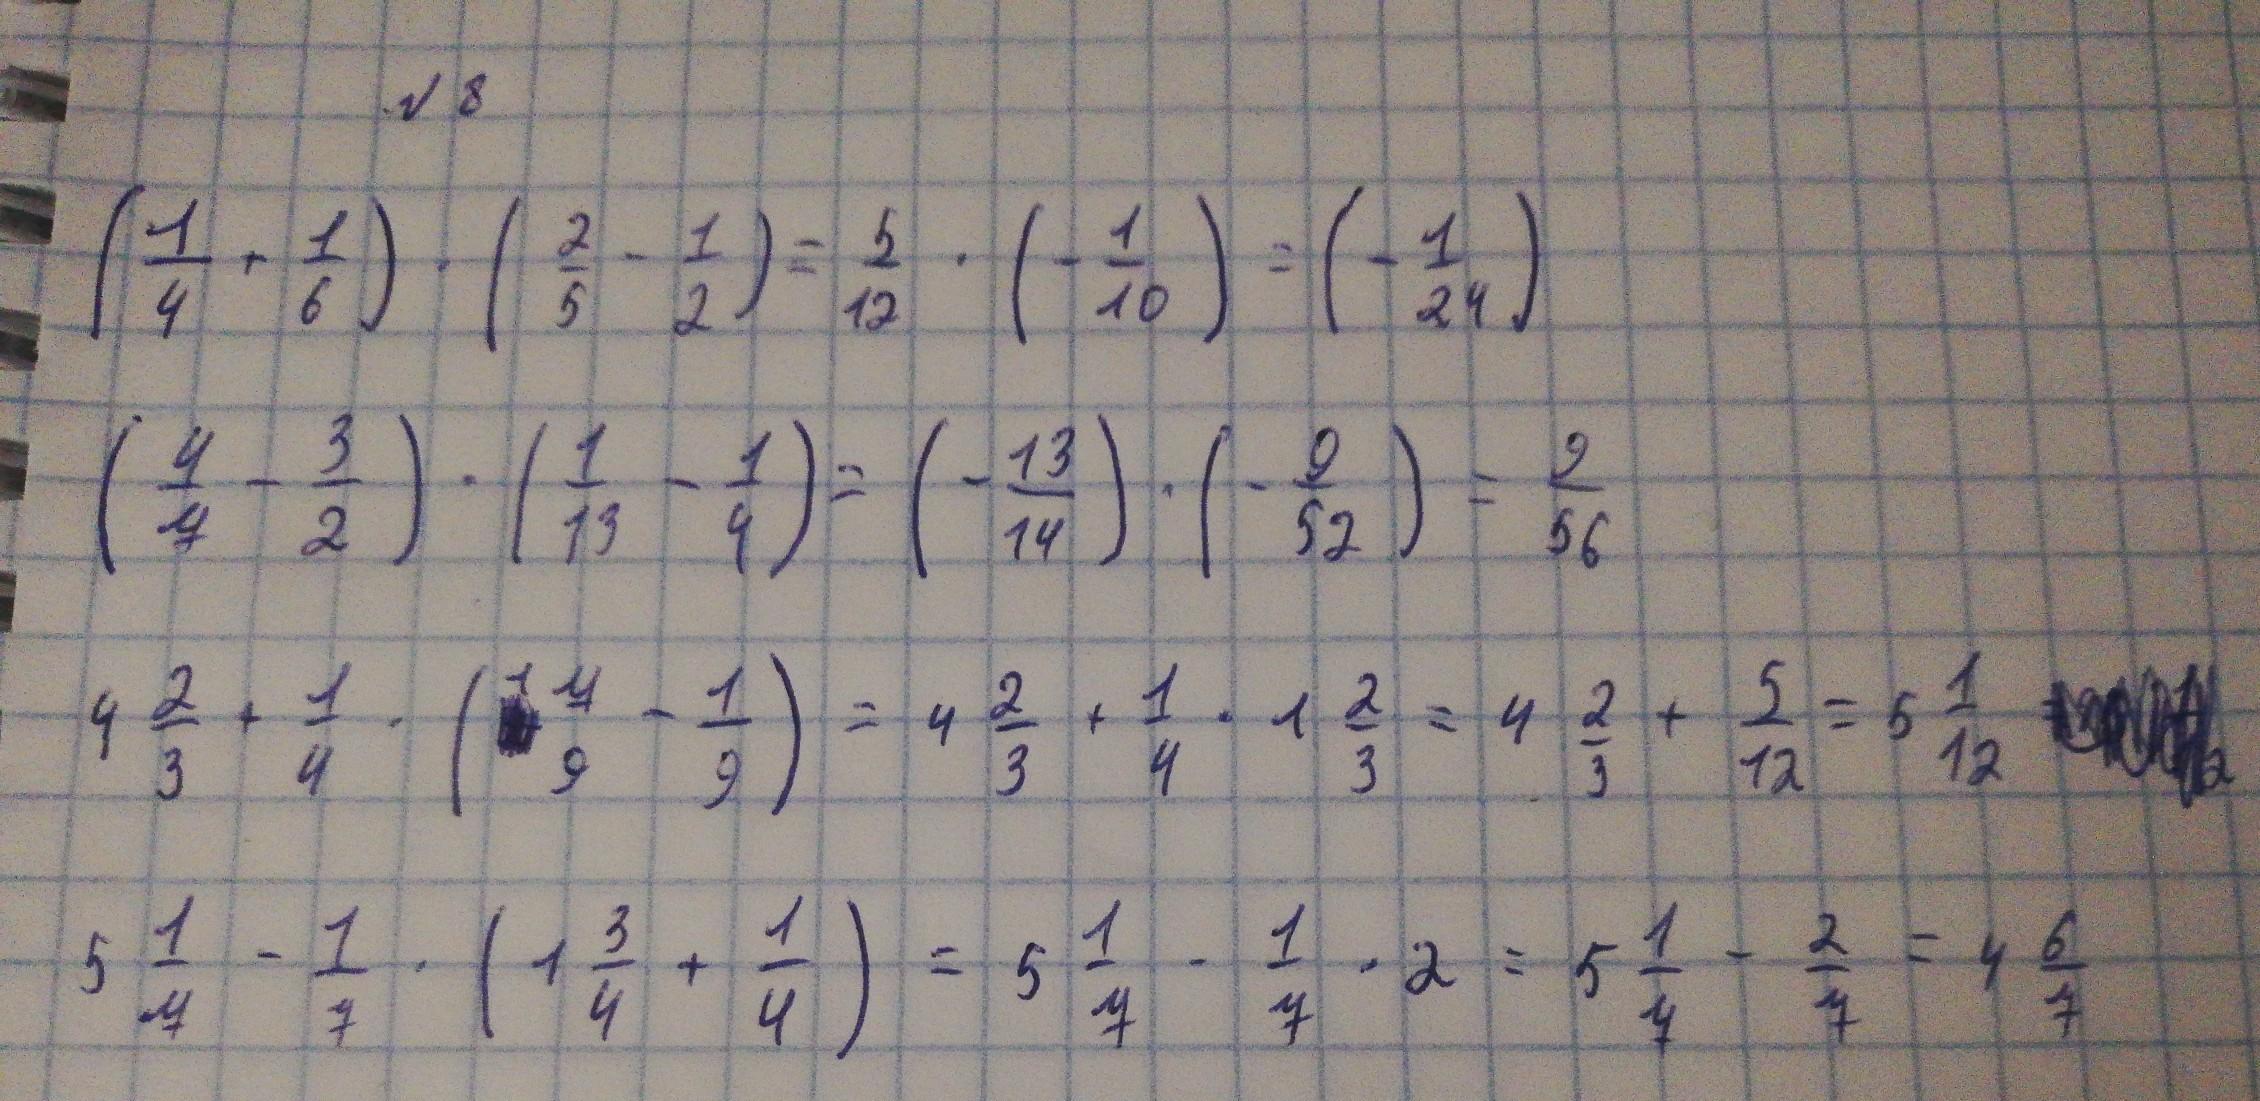 № 8
(1/4 + 1/6) · (2/5 - 1/2) = 5/12 · (-1/10) = (-1/24)
(4/7 - 3/2) · (1/13 - 1/4) = (-13/14) · (-9/52) = 9/56
4 2/3 + 1/4 · (1 7/9 - 1/9) = 4 2/3 + 1/4 · 1 2/3 = 4 2/3 + 5/12 = 5 1/12
5 1/7 - 1/7 · (1 3/4 + 1/4) = 5 1/7 - 1/7 · 2 = 5 1/7 - 2/7 = 4 6/7